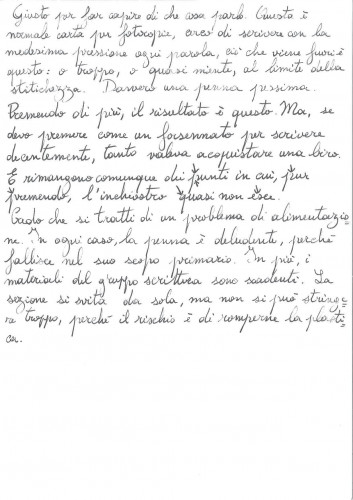 Giusto per far capire di che cosa parlo. Questa è
normale carta per fotocopie, cerco di scrivere con la
medesima pressione ogni parola, ciò che viene fuori è
questo: o troppo, o quasi niente, al limite della
statichezza. Davvero una penna pessima.
Premendo di più, il risultato è questo. Ma, se
devo premere come un forsennato per scrivere
decentemente, tanto valeva acquistare una biro.
E rimangono comunque dei punti in cui, pur
premendo, l'inchiostro quasi non esce.
Credo che si tratti di un problema di alimentazio-
ne. In ogni caso, la penna è deludente, perché
fallisce nel suo scopo primario. In più, i
materiali del gruppo scrittura sono scadenti. La
sezione si svita da sola, ma non si può stringe-
re troppo, perché il rischio è di romperne la plasti-
ca.